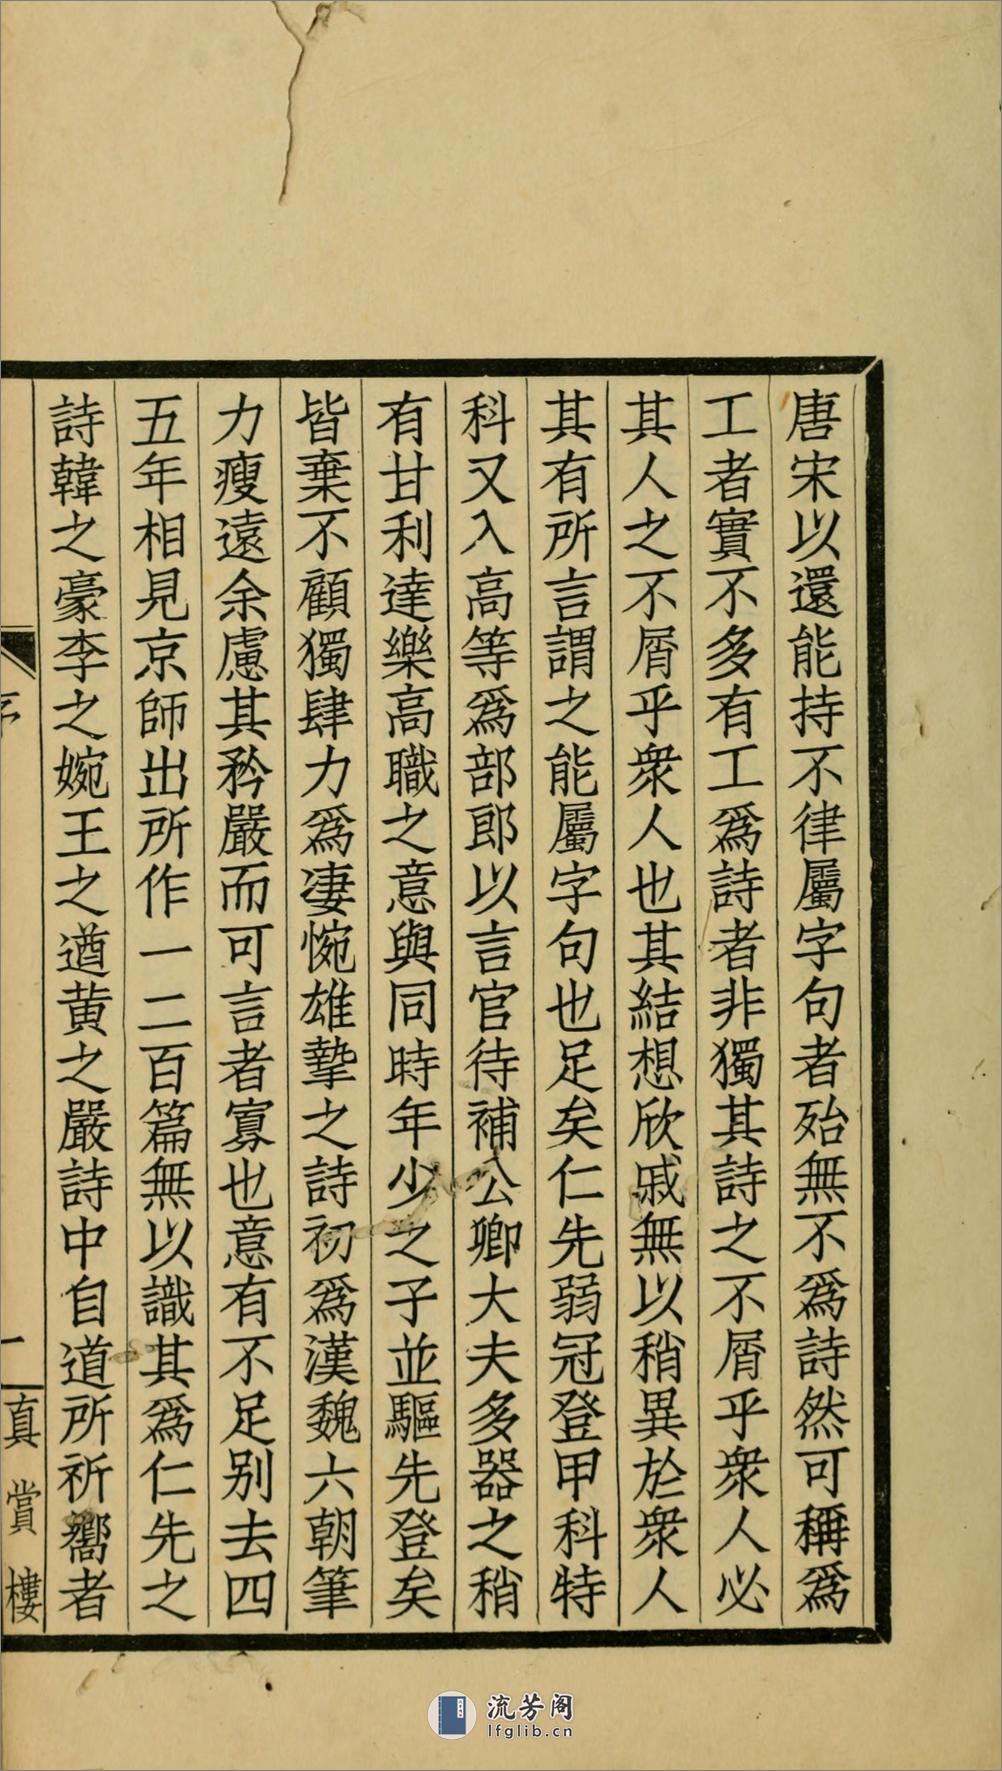 唐宋以還能持不律屬字句者殆無不爲詩然可稱爲
工者實不多有工爲詩者非獨其詩之不屑乎衆人必
其人之不屑乎衆人也其結想欣戚無以稍異於衆人
其有所言謂之能屬字句也足矣仁先弱冠登甲科特
科又入高等爲部郎以言官待補公卿大夫多器之稍
有甘利達樂高職之意與同時年少之子並驅先登矣
皆棄不顧獨肆力爲凄惋雄摯之詩初爲漢魏六朝筆
力瘦遠余慮其矜嚴而可言者寡也意有不足別去四
五年相見京師出所作一二百篇無以識其爲仁先之
詩韓之豪李之婉王之遒黄之嚴詩中自道所祈嚮者
序
一
真賞樓
流芳阁
lfglib.cn